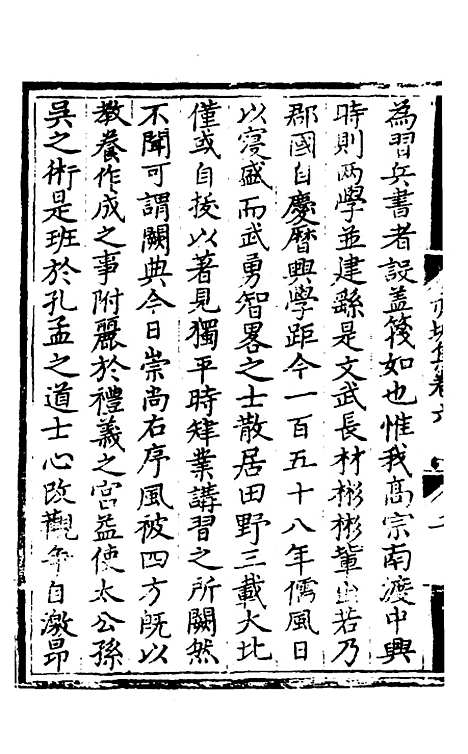 為習兵書者設蓋篾如也惟我高宗南渡中興
時則两學並建繇是文武長材彬彬輩出若乃
郡國自慶曆興學距今一百五十八年儒風日
以寖盛而武勇智畧之士散居田野三載大比
僅或自拔以著見獨平時肄業講習之所闕然
不聞可謂闕典今日崇尚右序風被四方既以
教養作成之事附麗於禮義之宮益使太公孫
吳之術是班於孔孟之道士心改觀争自激昂
集卷六